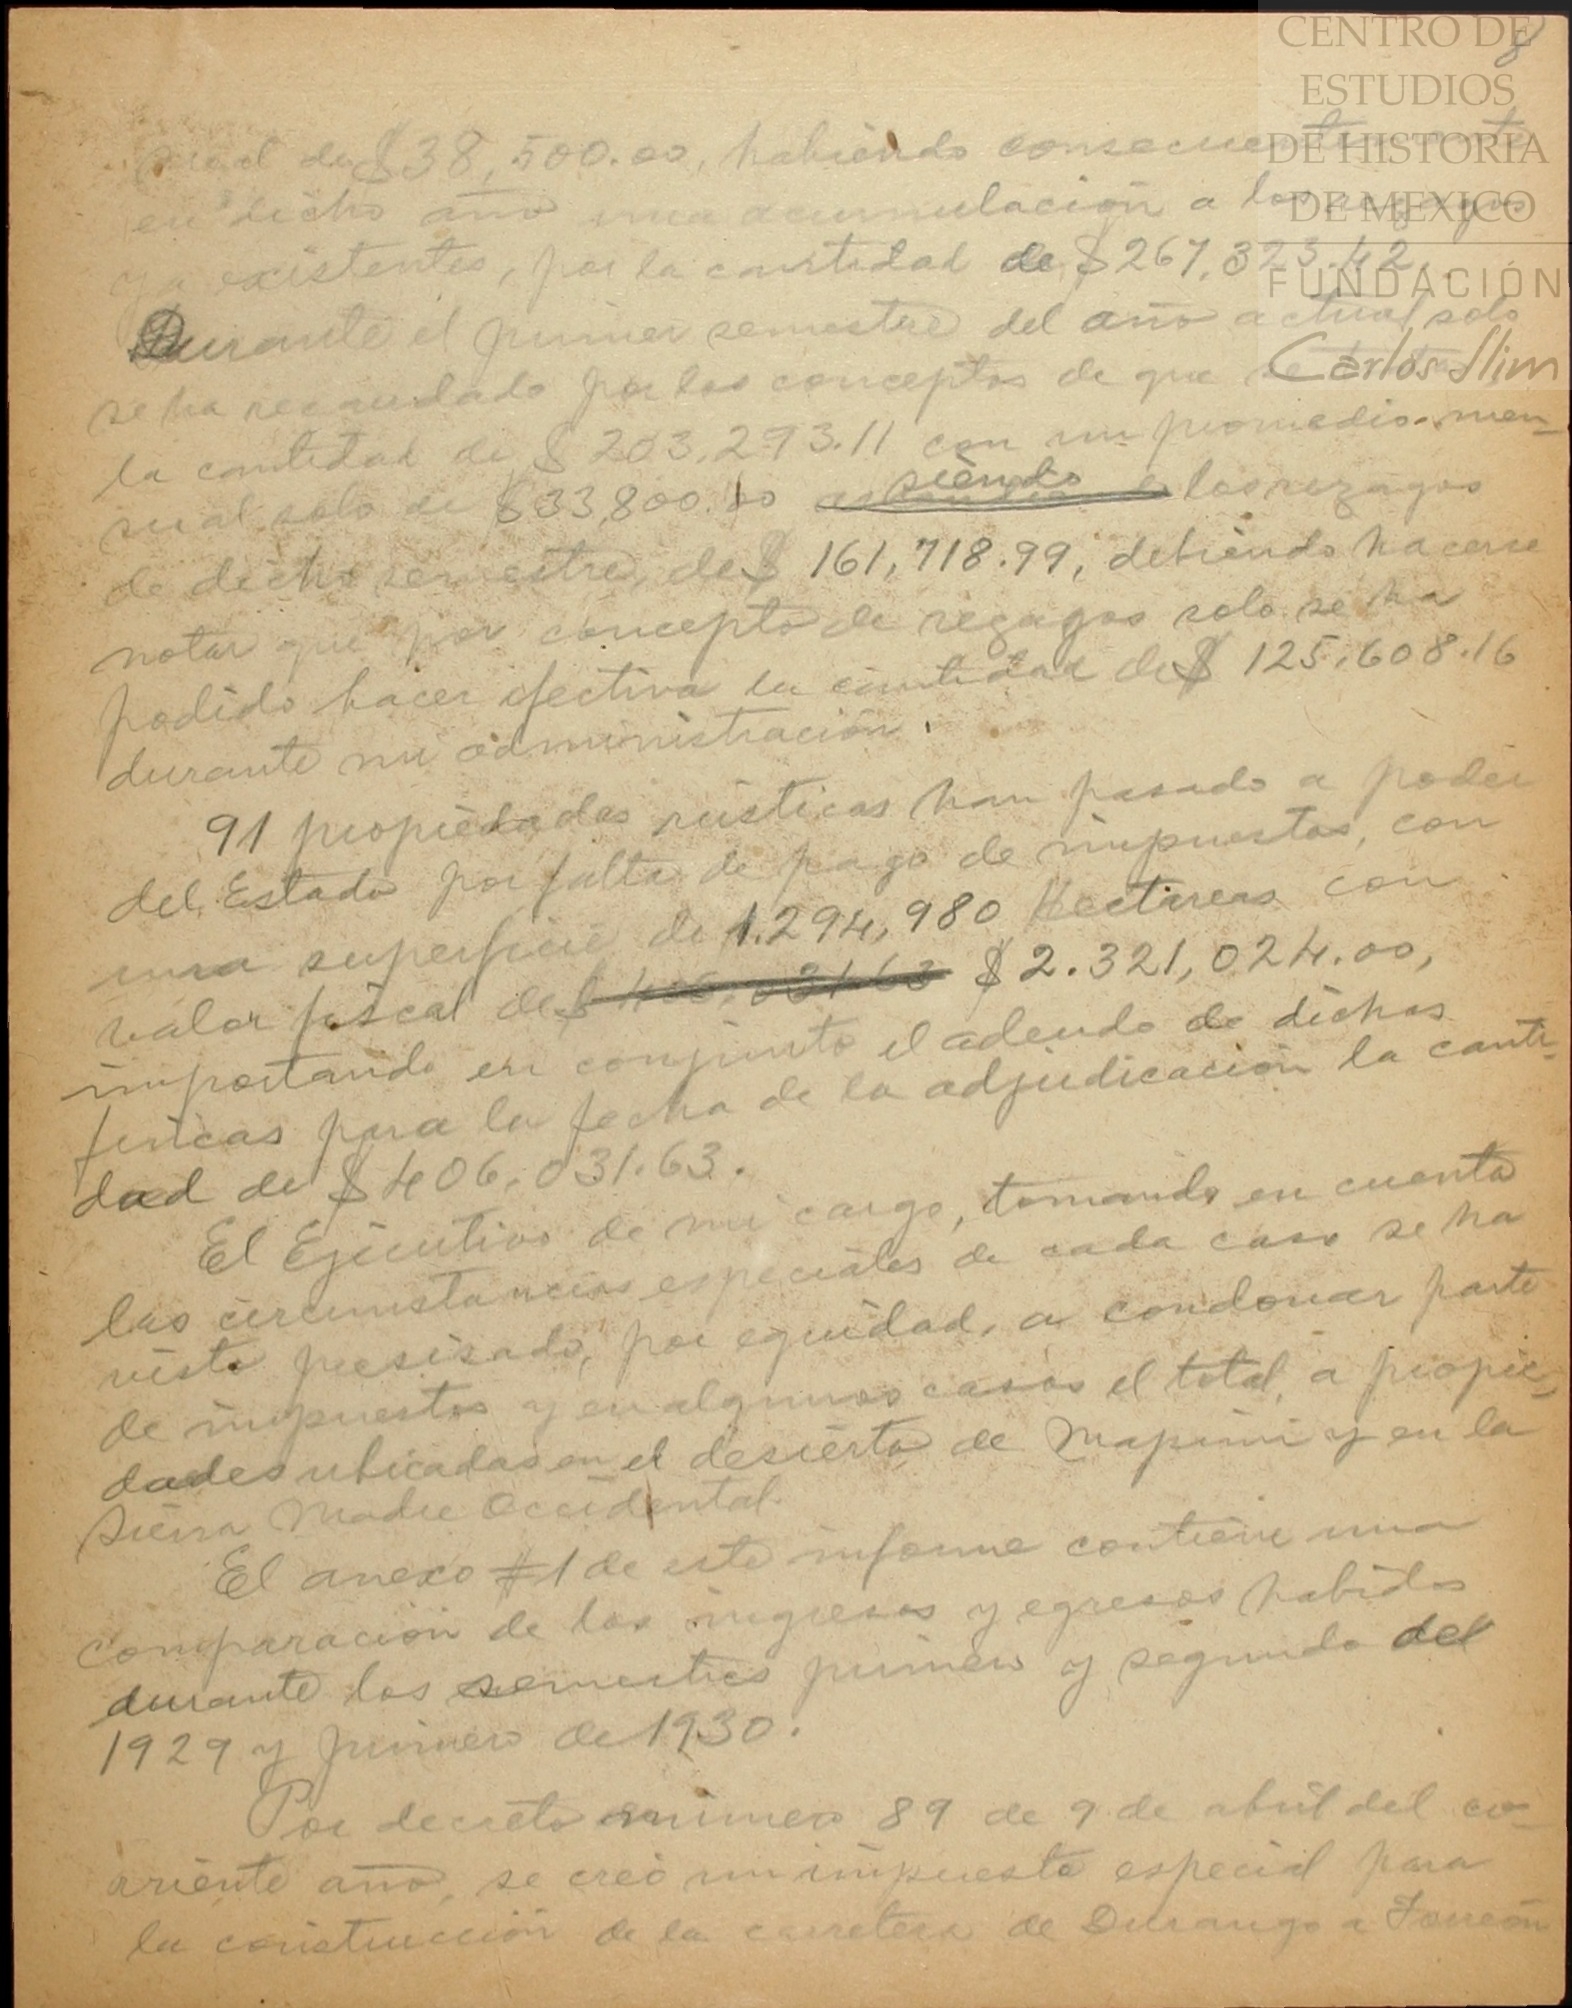 CENTRO DE
ESTUDIOS
DE HISTORIA
DE MEXICO
FUNDACIÓN
Carlos Slim
8
sual de $38,500.00, habiendo consecuentemente
en dicho año una acumulación a los rezagos
ya existentes, por la cantidad de $267,323.42.
Durante el primer semestre del año actual, solo
se ha recaudado por los conceptos de que se
la cantidad de $203,293.11 con un promedio men-
sual solo de $33,800.00 siendo los rezagos
de dicho semestre, de $161,718.99, debiendo hacerse
notar que por concepto de rezagos solo se ha
podido hacer efectiva la cantidad de $125,608.16
durante mi administración.
91 propiedades rústicas han pasado a poder
del Estado por falta de pago de impuestos, con
una superficie de 1.294,980 Hectareas con
valor fiscal de $ 406,031.63 $2.321,024.00,
importando en conjunto el adeudo de dichas
fincas para la fecha de la adjudicación la canti-
dad de $406,031.63.
El Ejecutivo de mi cargo, tomando en cuenta
las circunstancias especiales de cada caso se ha
visto presisado, por equidad, a condonar parte
de impuestos y en algunos casos el total, a propie-
dades ubicadas en el desierto de Mapimi y en la
Sierra Madre Occidental.
El anexo #1 de este informe contiene una
comparación de los ingresos y egresos habidos
durante los semestres primero y segundo del
1929 y primero de 1930.
Por decreto número 89 de 9 de abril del co-
rriente año, se creó un impuesto especial para
la construcción de la carretera de Durango a Torreón